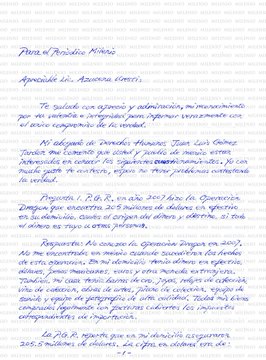 Para el Periódico Milenio
Apreciable Lic. Azucena Uresti:
Te saludo con aprecio y admiración, mi reconocimiento
por tu valentía e integridad para informar verazmente con
el único compromiso de la verdad.
Mi abogado de Derechos Humanos Juan Luis Gómez
Jardón me comenta que usted y pueblo de mexico estan
interesados en conocer los siguientes cuestionamientos. Yo con
mucho gusto te contesto, espero no tener problemas contestando
la verdad.
Pregunta 1. P.G.R., en año 2007 hizo la Operación
Dragon que encontro 205 millones de dolares en efectivo
en su domicilio. Cuales el origen del dinero y destino, si todo
el dinero es tuyo u otras personas.
Respuesta: No conozco la Operación Dragon en 2007.
No me encontraba en mexico cuando sucedieron los hechos
de esta operación. En mi domicilio tenía dinero en efectivo,
dolares, pesos mexicanos, euros y otra moneda extranjera.
Tambien, mi casa tenía barras de oro, joyas, relojes de colección,
vino de colección, obras de artes, piano de colección, equipo de
sonido y equipo de fotografia de alta calidad. Todos mis bienes
comprados legalmente con facturas cubiertos los impuestos
correspondientes de importación.
La P.G.R. reporta que en mi domicilio aseguraron
205.5 millones de dolares. Al cifra en dolares era de:
-1-